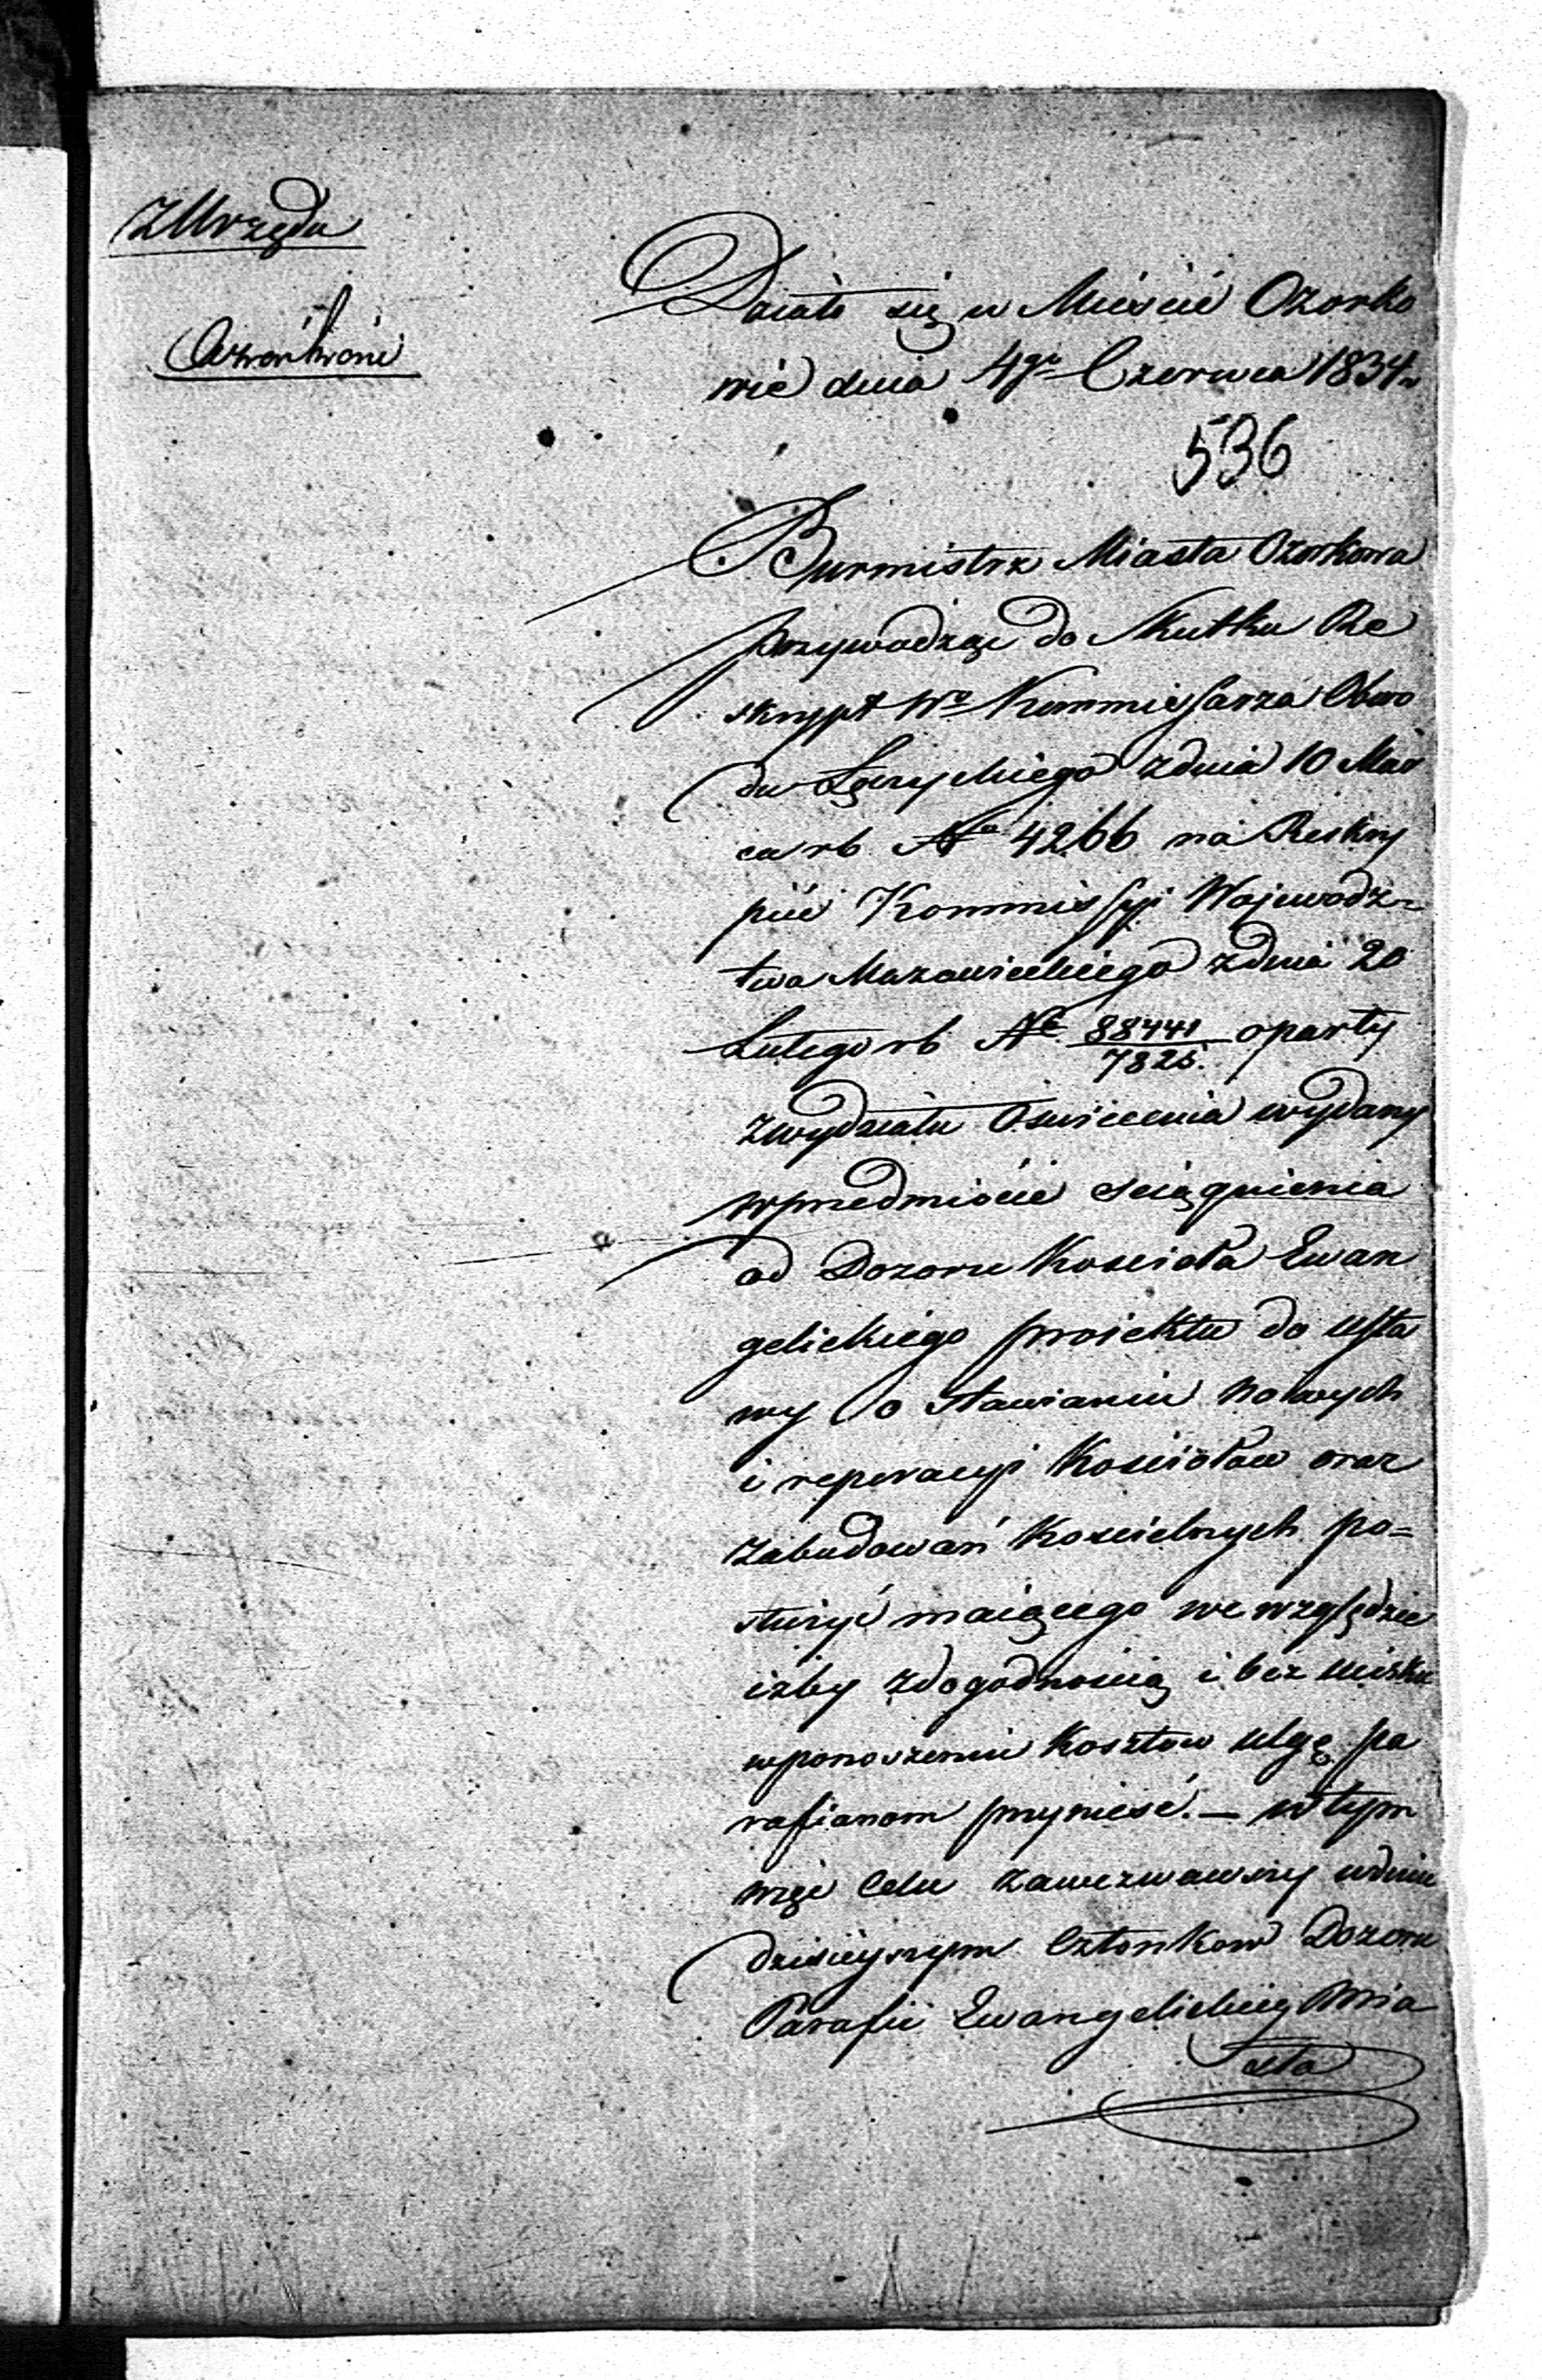 z Urzędu
Działo się w Mieście Ozorko
wie dnia 4go Czerwca 1834 r
536
Burmistrz Miasta Ozorkowa
przywodząc do skutku Re
skrypt Wo Kommissarza Obwo
du Łęczyckiego z dnia 10 Mar
ca rb No 4266 na Reskry
pcie Kommissyi Wojewodz-
twa Mazowieckiego z dnia 20
Lutego rb No 88441/7825. oparty
z wydziału Oświecenia wydany
w przedmiocie ściągnienia
od Dozoru Kościoła Ewan
gelickiego projektu do usta
wy o stawianiu nowych
i reperacyi Kościołow oraz
zabudowań Kościelnych po=
służyć maiącego we względzie
iżby z dogodnością i bez ucisku
w ponoszeniu Kosztow ulgę pa
rafianom przynieść. — w tym
więc Celu zawezwawszy w dniu
dzisieyszym Członkow Dozoru
Parafii Ewangelickiey Mia
sta